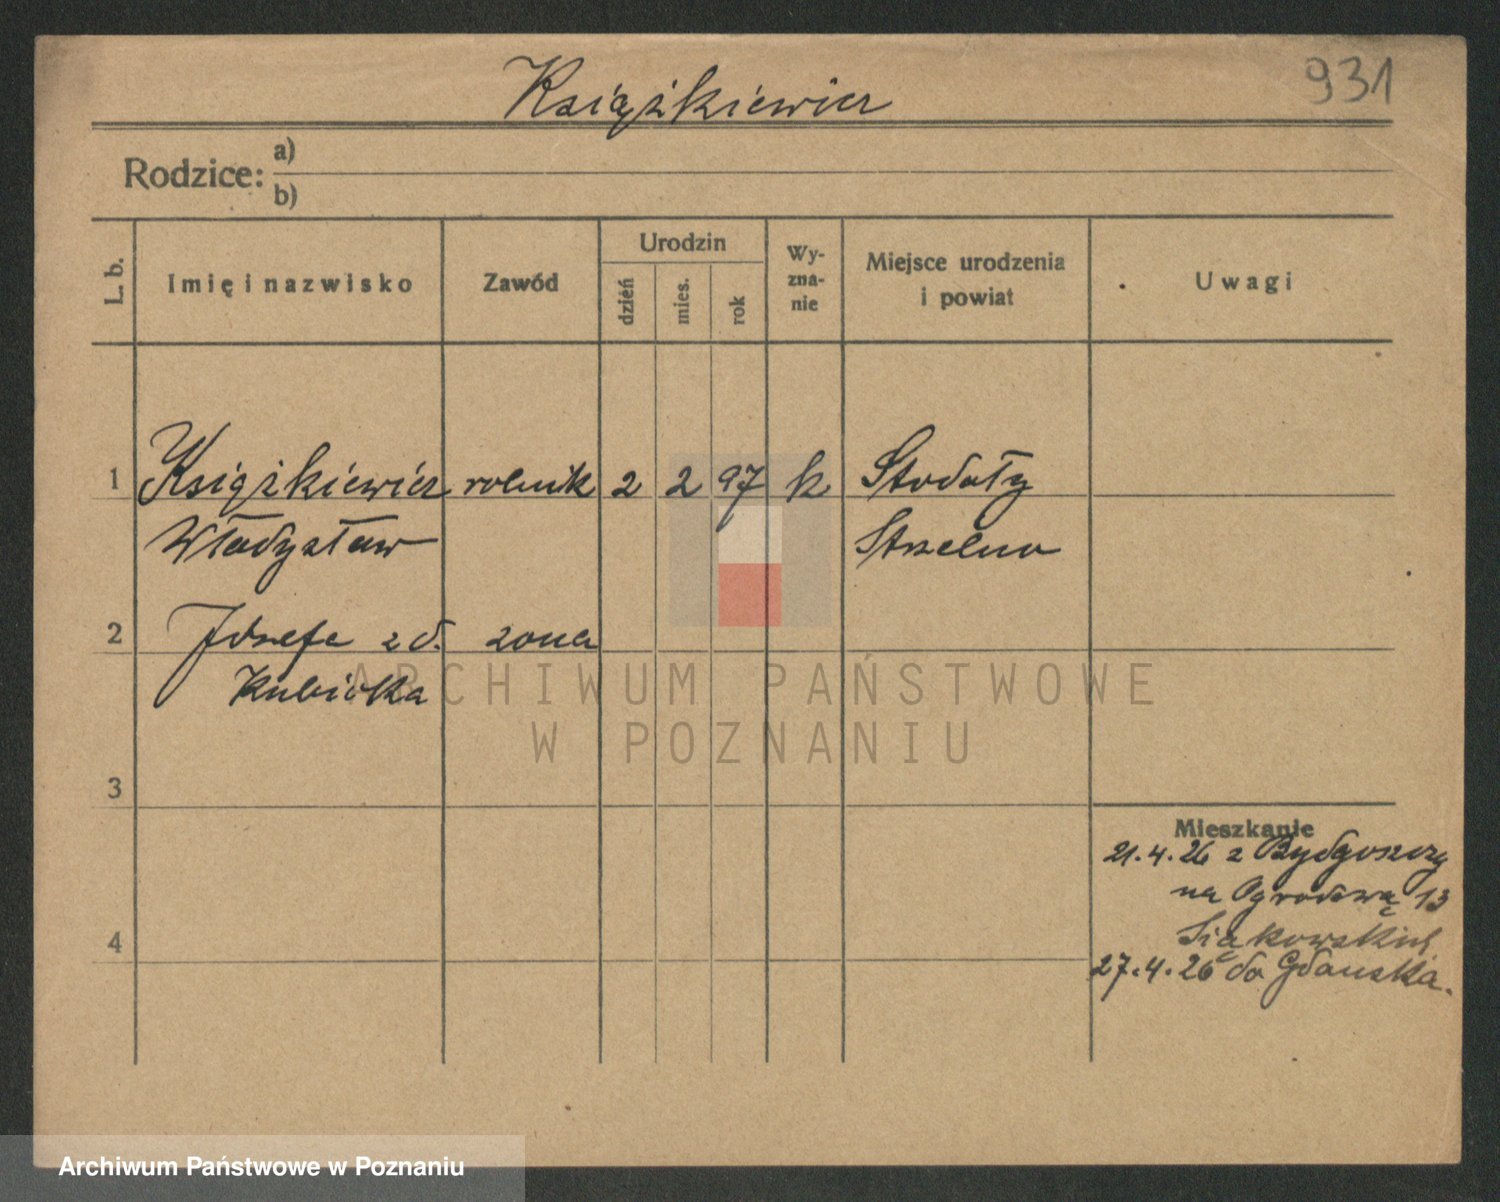 Książkiewicz
931
Rodzice: a)
b)
L. b.
Imię i nazwisko
Zawód
Urodzin
dzień
mies.
rok
Wy-
zna-
nie
Miejsce urodzenia
i powiat
Uwagi
1 Książkiewicz rolnik 2 2 97 k Stodoły
Władysław Strzelno
2 Józefa z d. żona
Kubicka
ARCHIWUM PAŃSTWOWE
W POZNANIU
3
Mieszkanie
21.4.26 z Bydgoszczy
na Ogrodową 13
4
27.4.26 do Gdańska.
Archiwum Państwowe w Poznaniu